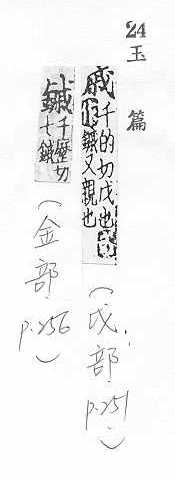 24
玉篇
戚千的切戉也
作鏚又親也
(戉部 p.251)
鏚千歷切
鏚
(金部 p.256)